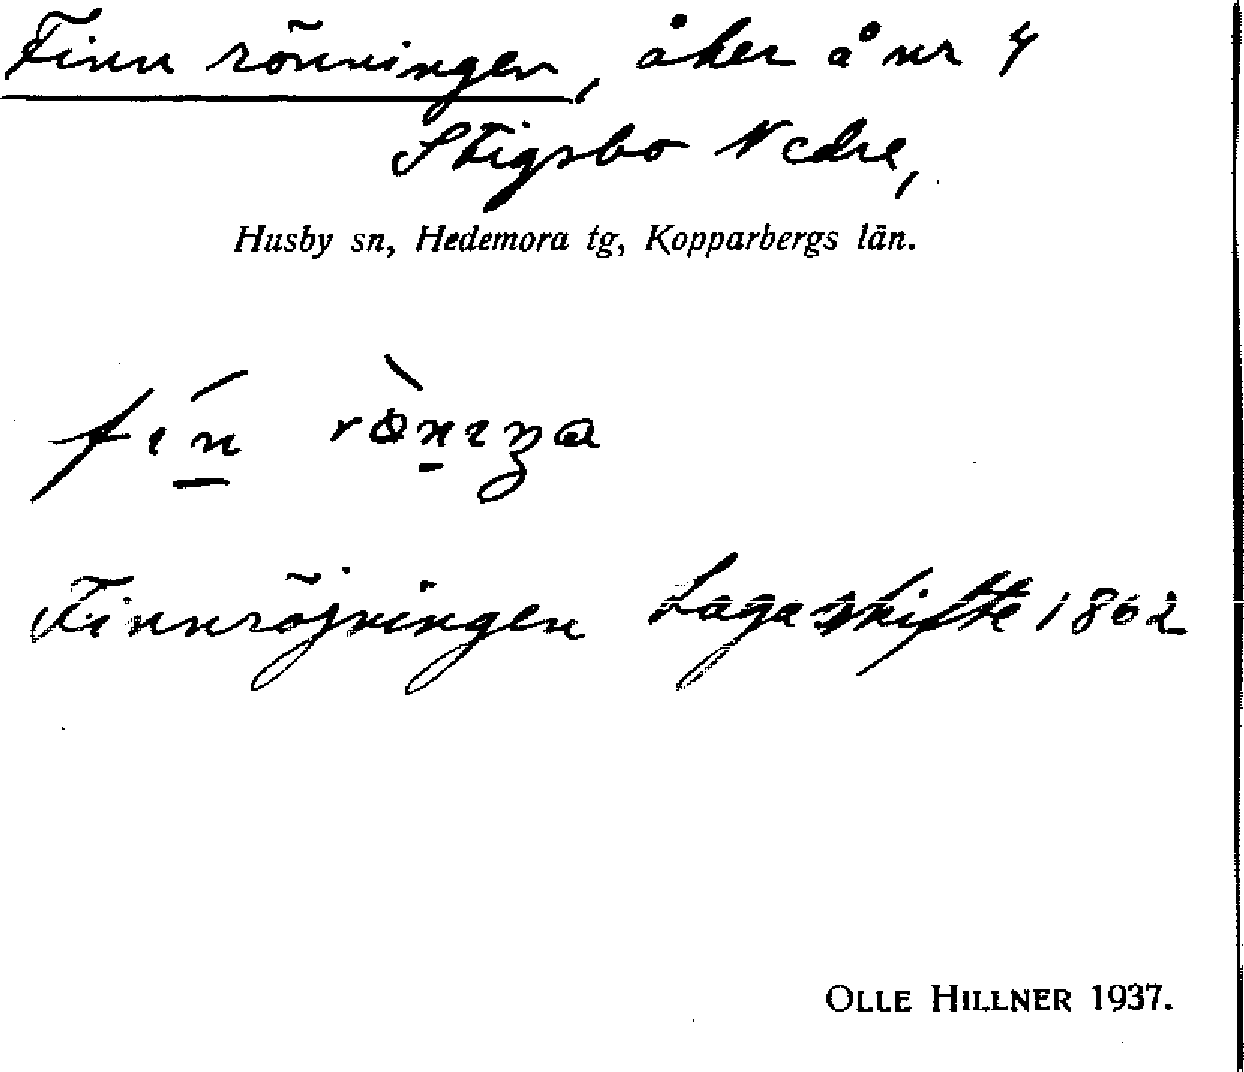 Finnrönningen, åker å nr 4
Stigsbo Nedre,
Husby sn, Hedemora tg, Kopparbergs län.
Finnröjningen Laga skifte 1862
OLLE HILLNER 1937.